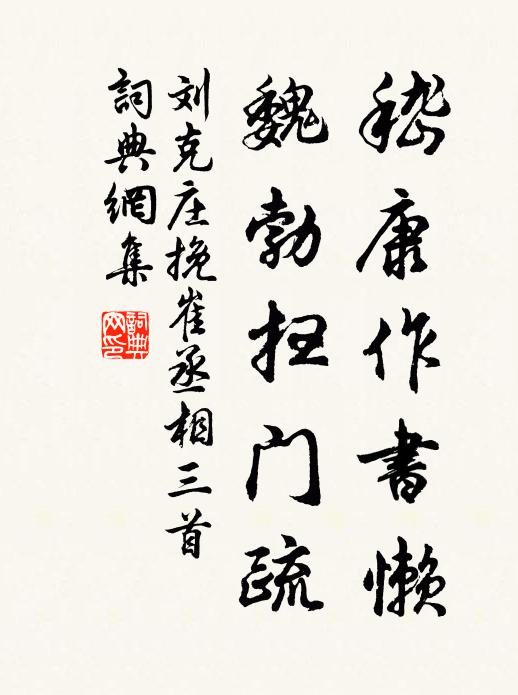 嵇康作書懶
魏勃扫门疏
刘克庄挽崔丞相三首
詞典網集
詞典網印